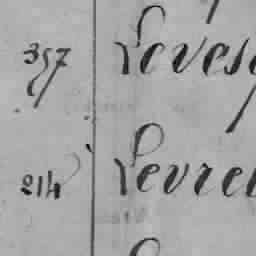 357 Leves
214 Levre